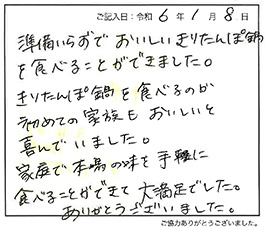 ご記入日：令和 6 年 1 月 8 日
準備いらずで おいしいきりたんぽ鍋
を食べることができました。
きりたんぽ鍋を食べるのが
初めての家族も おいしいと
喜んでいました。
家庭で本場の味を手軽に
食べることができて 大満足でした。
ありがとうございました。
ご協力ありがとうございました。